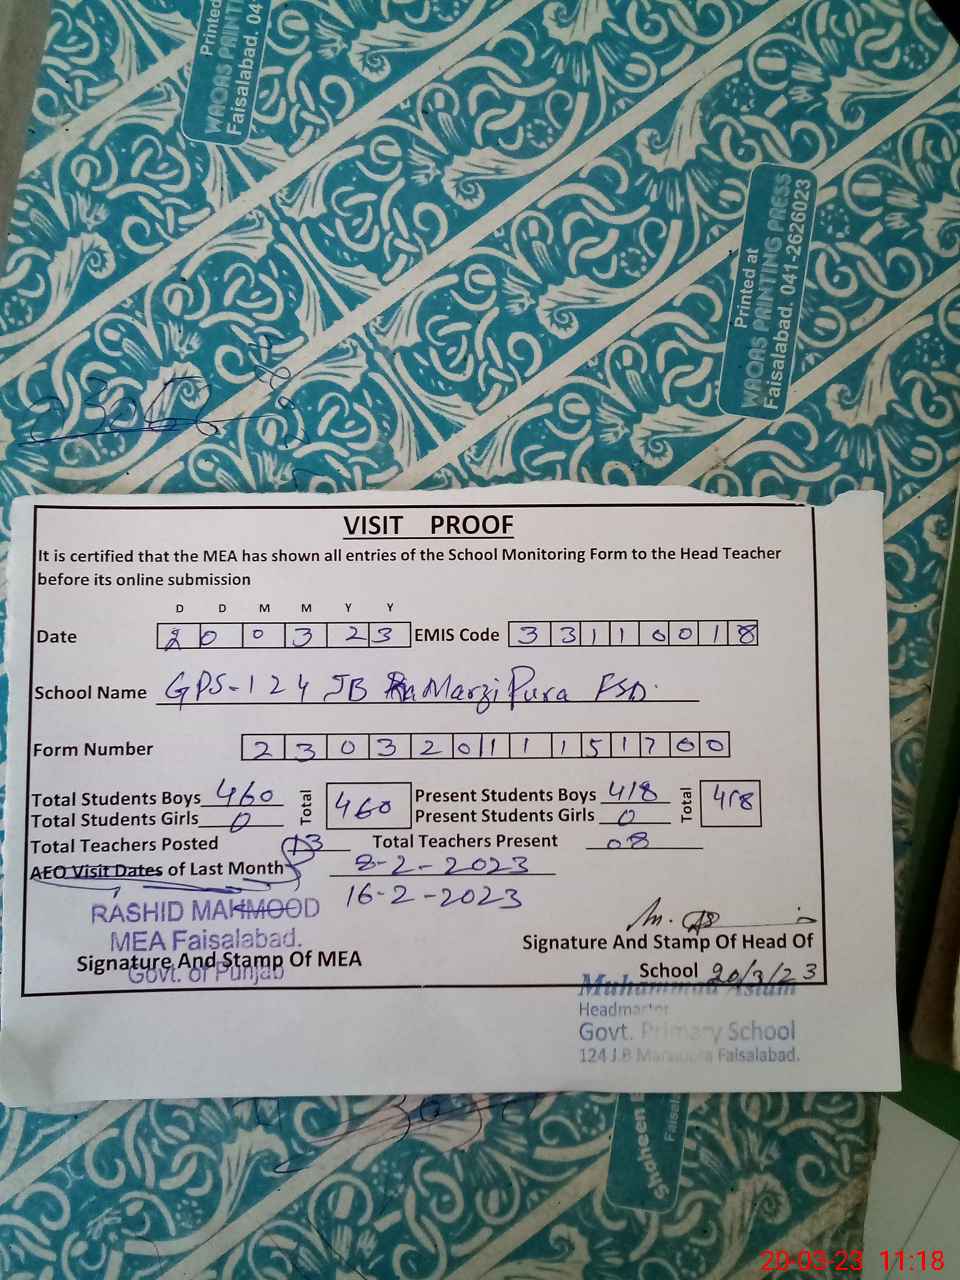 Printed
WAQAS PAINTING
Faisalabad. 041
Printed at
WAQAS PAINTING PRESS
Faisalabad. 041-2626023
VISIT PROOF
It is certified that the MEA has shown all entries of the School Monitoring Form to the Head Teacher
before its online submission
D D M M Y Y
Date 2 0 0 3 2 3 EMIS Code 3 3 1 1 0 0 1 8
School Name GPS-124 JB Marzi Pura FSD.
Form Number 2 3 0 3 2 0 1 1 1 1 5 1 7 0 0
Total Students Boys 460 Total 460 Present Students Boys 418 Total 418
Total Students Girls 0 Present Students Girls 0
Total Teachers Posted 13 Total Teachers Present 08
AEO Visit Dates of Last Month 8-2-2023
16-2-2023
RASHID MAHMOOD
MEA Faisalabad.
Govt. of Punjab
Signature And Stamp Of MEA
Signature And Stamp Of Head Of
School 20/3/23
Muhammad Aslam
Headmaster
Govt. Primary School
124 J.B Faisalabad.
Shaheen
Faisal
20-03-23 11:18